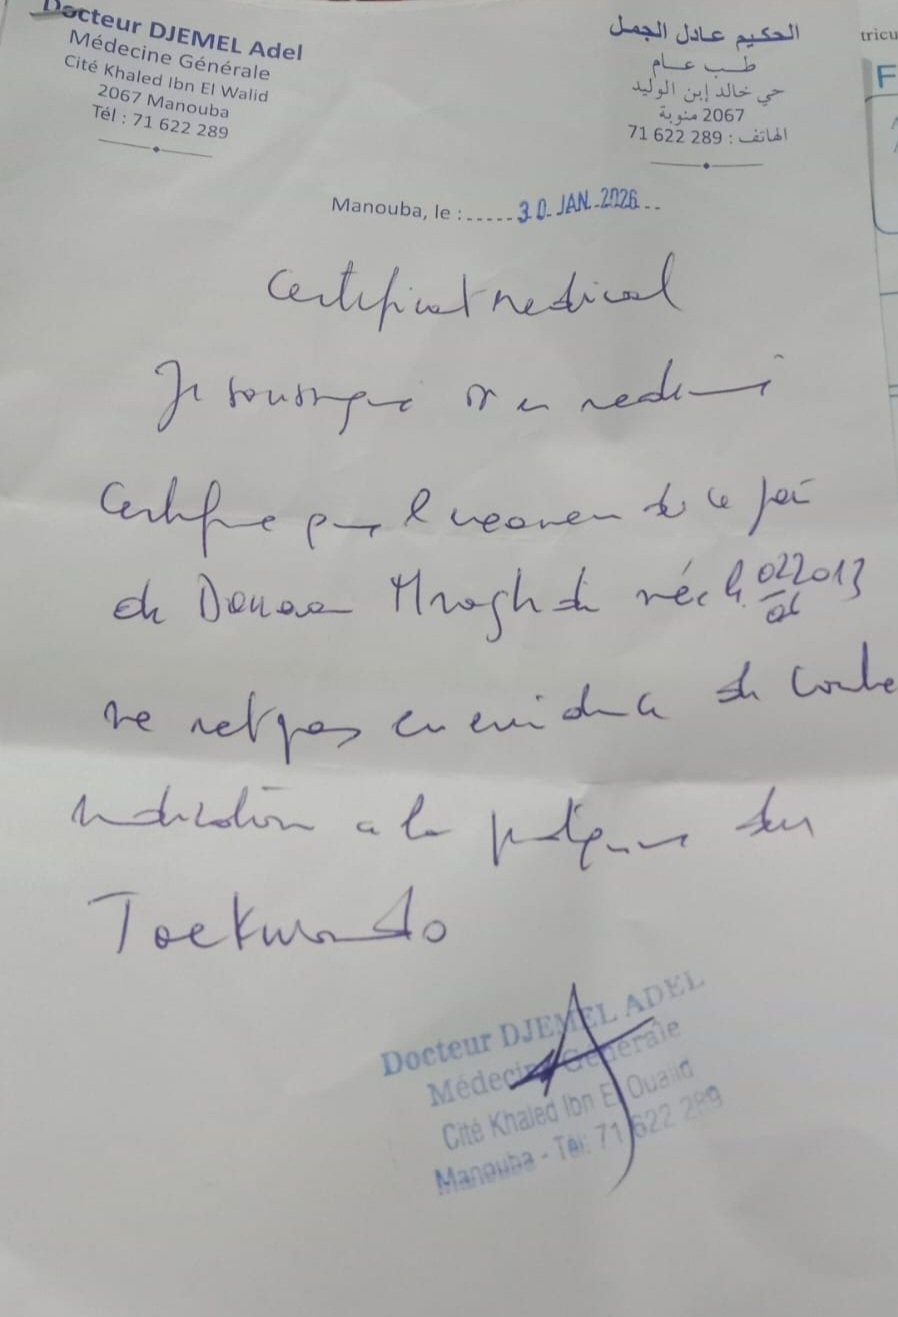 Docteur DJEMEL Adel
Médecine Générale
Cité Khaled Ibn El Walid
2067 Manouba
Tél : 71 622 289
الحكيم عادل الجمل
طب عام
حي خالد إبن الوليد
2067 منوبة
الهاتف : 289 622 71
tricu
F
Manouba, le : 30 JAN. 2026
Certificat medical
Je soussigné
Certifie que l'examen de ce
de Douaa née le 02 2013
06
ne met pas en evidence de contre
indication a la pratique du
Taekwondo
Docteur DJEMEL ADEL
Médecine Générale
Cité Khaled Ibn El Oualid
Manouba - Tél: 71 622 289